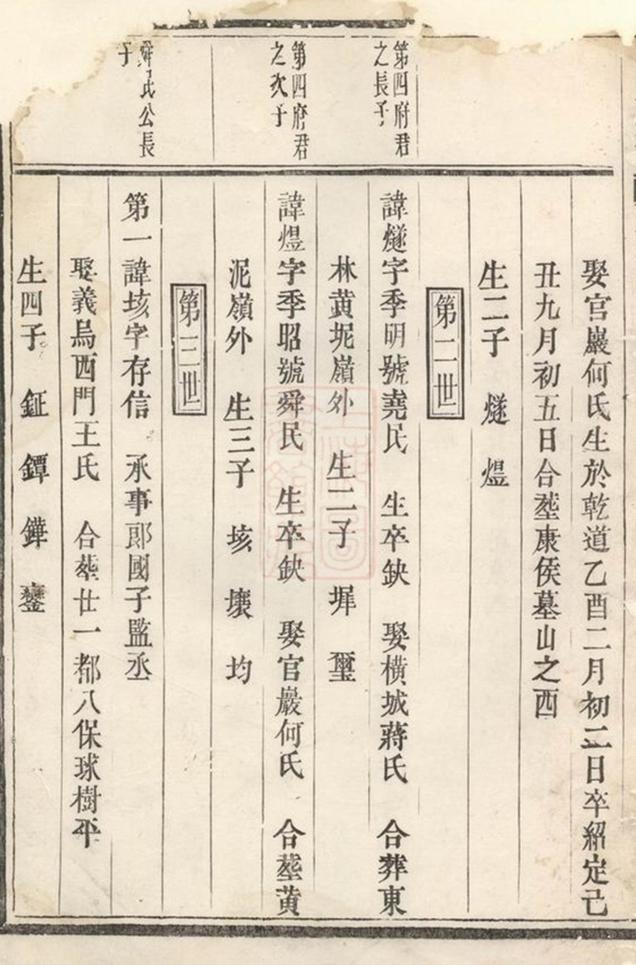 娶官巖何氏生於乾道乙酉二月初二日卒紹定己
丑九月初五日合塟康侯墓山之西
生二子 燧 煜
第二世
第四府君
之長子
諱燧字季明號堯民 生卒缺 娶橫城蔣氏 合葬東
林黄坭嶺外 生二子 墀 璽
第四府君
之次子
諱煜字季昭號舜民 生卒缺 娶官巖何氏 合塟黄
泥嶺外 生三子 垓 壞 均
第三世
舜民公長
子
第一諱垓字存信 承事郎國子監丞
娶義烏西門王氏 合塟廿一都八保球樹平
生四子 鉦 鐔 鏵 鑾